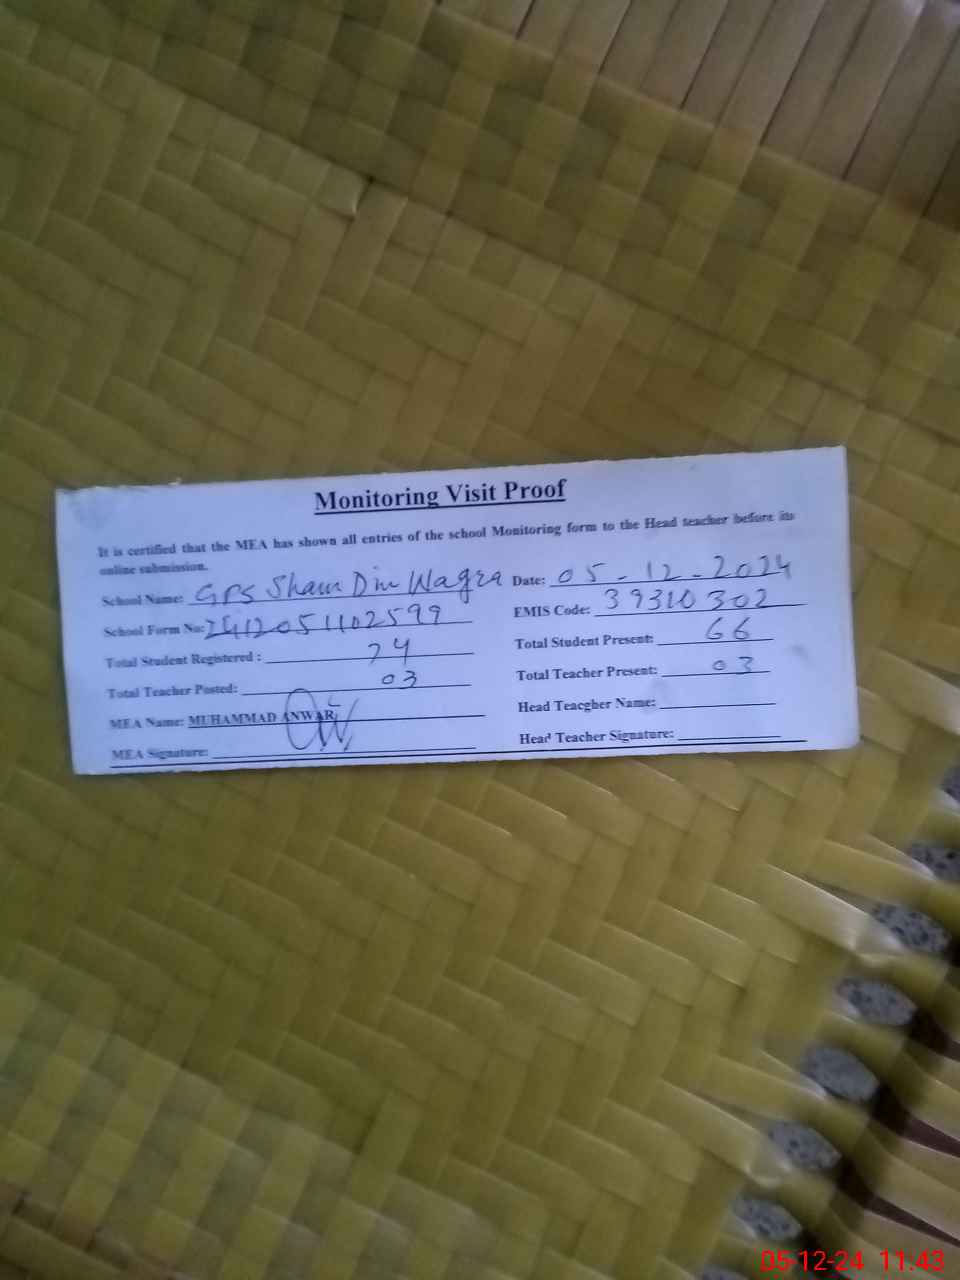 Monitoring Visit Proof
It is certified that the MEA has shown all entries of the school Monitoring form to the Head teacher before its
online submission.
School Name: GPS Sham Din Wagra Date: 05-12-2024
School Form No: 2412051102599 EMIS Code: 39310302
Total Student Registered : 74 Total Student Present: 66
Total Teacher Posted: 03 Total Teacher Present: 03
MEA Name: MUHAMMAD ANWAR Head Teacgher Name:
MEA Signature: Head Teacher Signature:
05-12-24 11:43